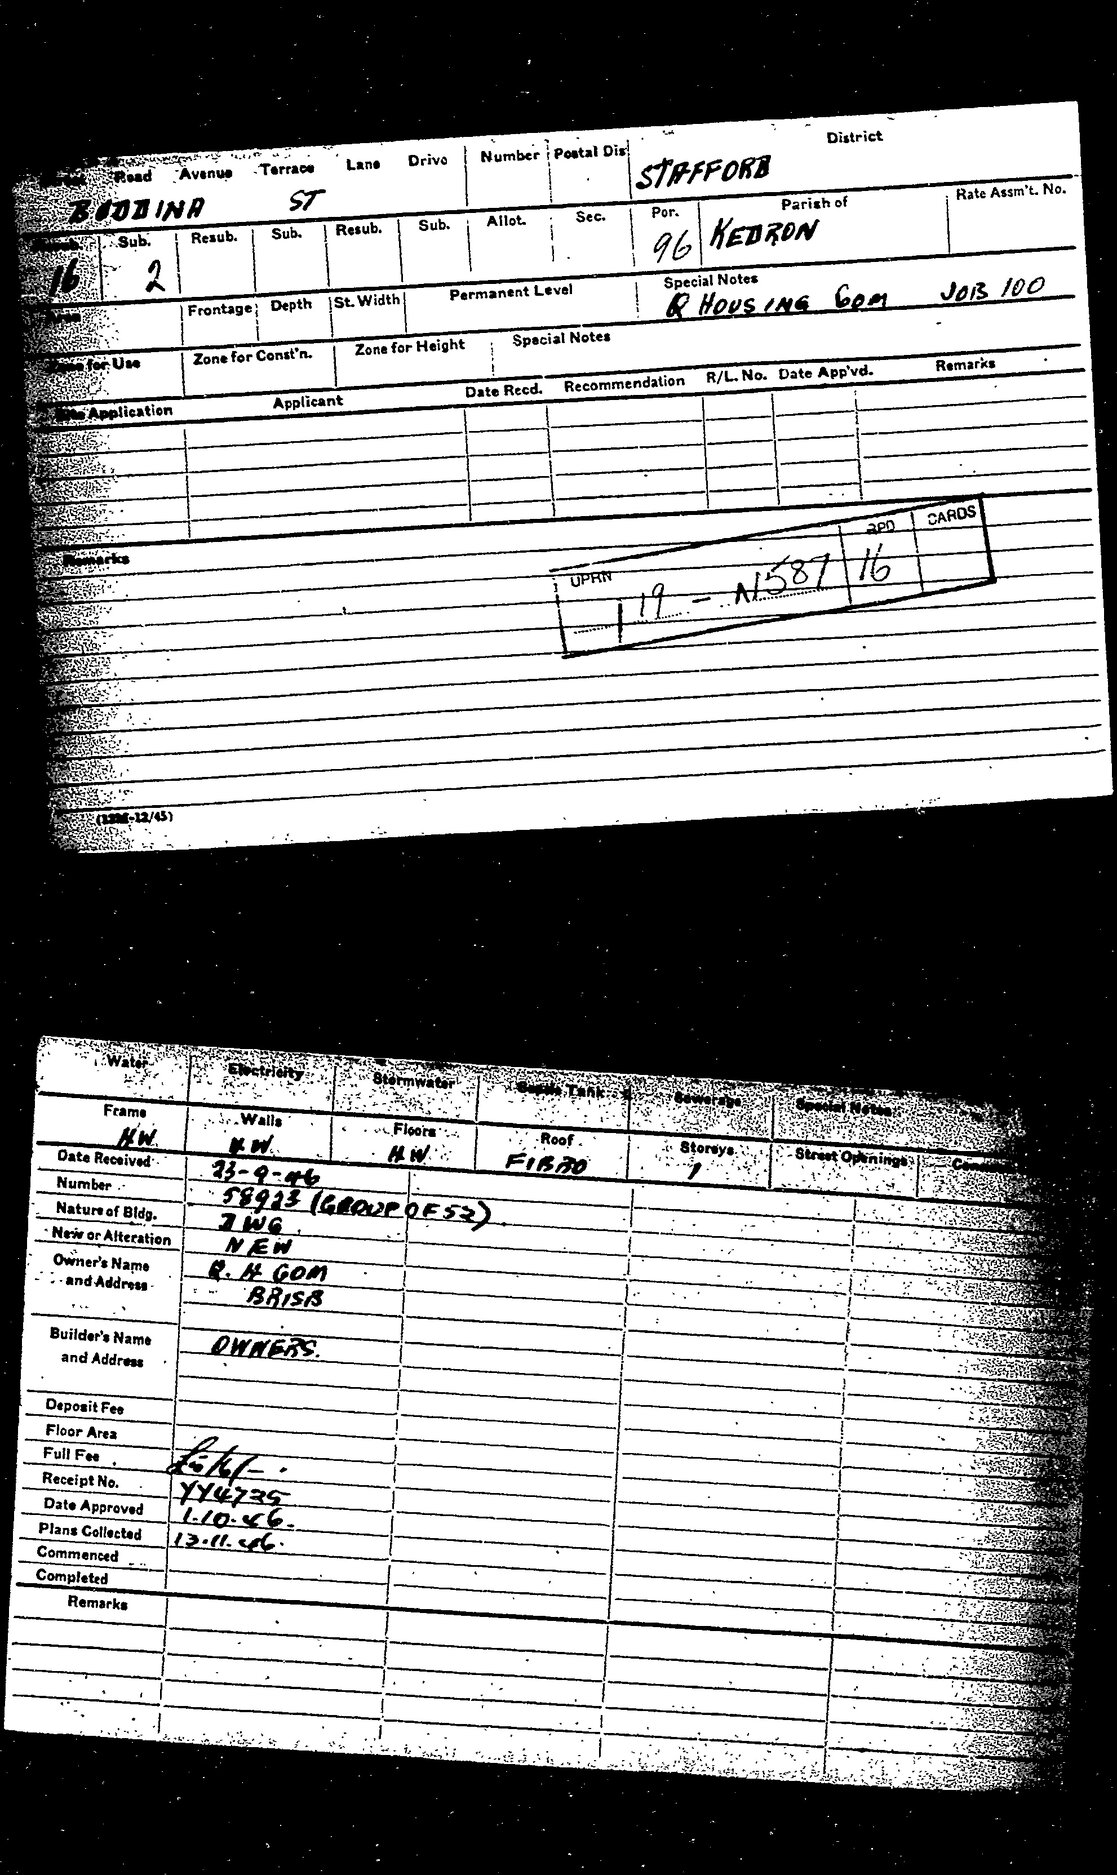 Road Avenue Terrace Lane Drive Number Postal Dis District
BOOBINA ST STAFFORD
Resub. Sub. Resub. Sub. Resub. Sub. Allot. Sec. Por. Parish of Rate Assm't. No.
16 2 96 KEDRON
Area Frontage Depth St. Width Permanent Level Special Notes
Q HOUSING COM JOB 100
Zone for Use Zone for Const'n. Zone for Height Special Notes
Site Application Applicant Date Recd. Recommendation R/L. No. Date App'vd. Remarks
Remarks
UPRN BPD CARDS
119 - N1587 16
Water Electricity Stormwater Septic Tank Sewerage Special Notes
Frame Walls Floors Roof Storeys Street Openings
H.W. H.W. H.W. FIBRO 1
Date Received 23-9-46
Number 58923 (GROUP OF 52)
Nature of Bldg. DWG
New or Alteration NEW
Owner's Name Q. H COM
and Address BRISB
Builder's Name OWNERS.
and Address
Deposit Fee
Floor Area
Full Fee
Receipt No. YY4725
Date Approved 1.10.46.
Plans Collected 13.11.46.
Commenced
Completed
Remarks